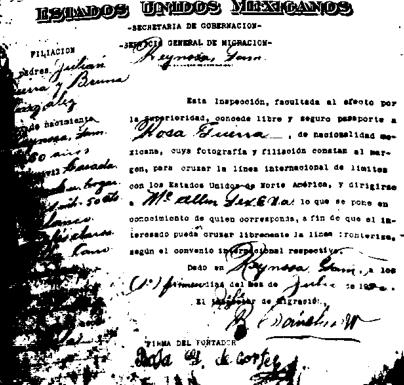 ESTADOS UNIDOS MEXICANOS
-SECRETARIA DE GOBERNACION-
-SERVICIO GENERAL DE MIGRACION-
Reynosa, Tam.
FILIACION
Padres, Julián
Guerra y Bruna
González
de nacimiento
Reynosa, Tam.
60 años
Casada
hogar
Esta Inspección, facultada al efecto por
la Superioridad, concede libre y seguro pasaporte a
Rosa Guerra, de nacionalidad me-
xicana, cuya fotografía y filiación constan al mar-
gen, para cruzar la línea internacional de límites
con los Estados Unidos de Norte América, y dirigirse
a Mc Allen Texas lo que se pone en
conocimiento de quien corresponda, a fin de que el in-
teresado pueda cruzar libremente la línea fronteriza,
según el convenio internacional respectivo.
Dado en Reynosa Tam, a los
(1o) primero días del mes de Julio de
El Inspector de Migración
FIRMA DEL PORTADOR
Rosa G. de Cortez